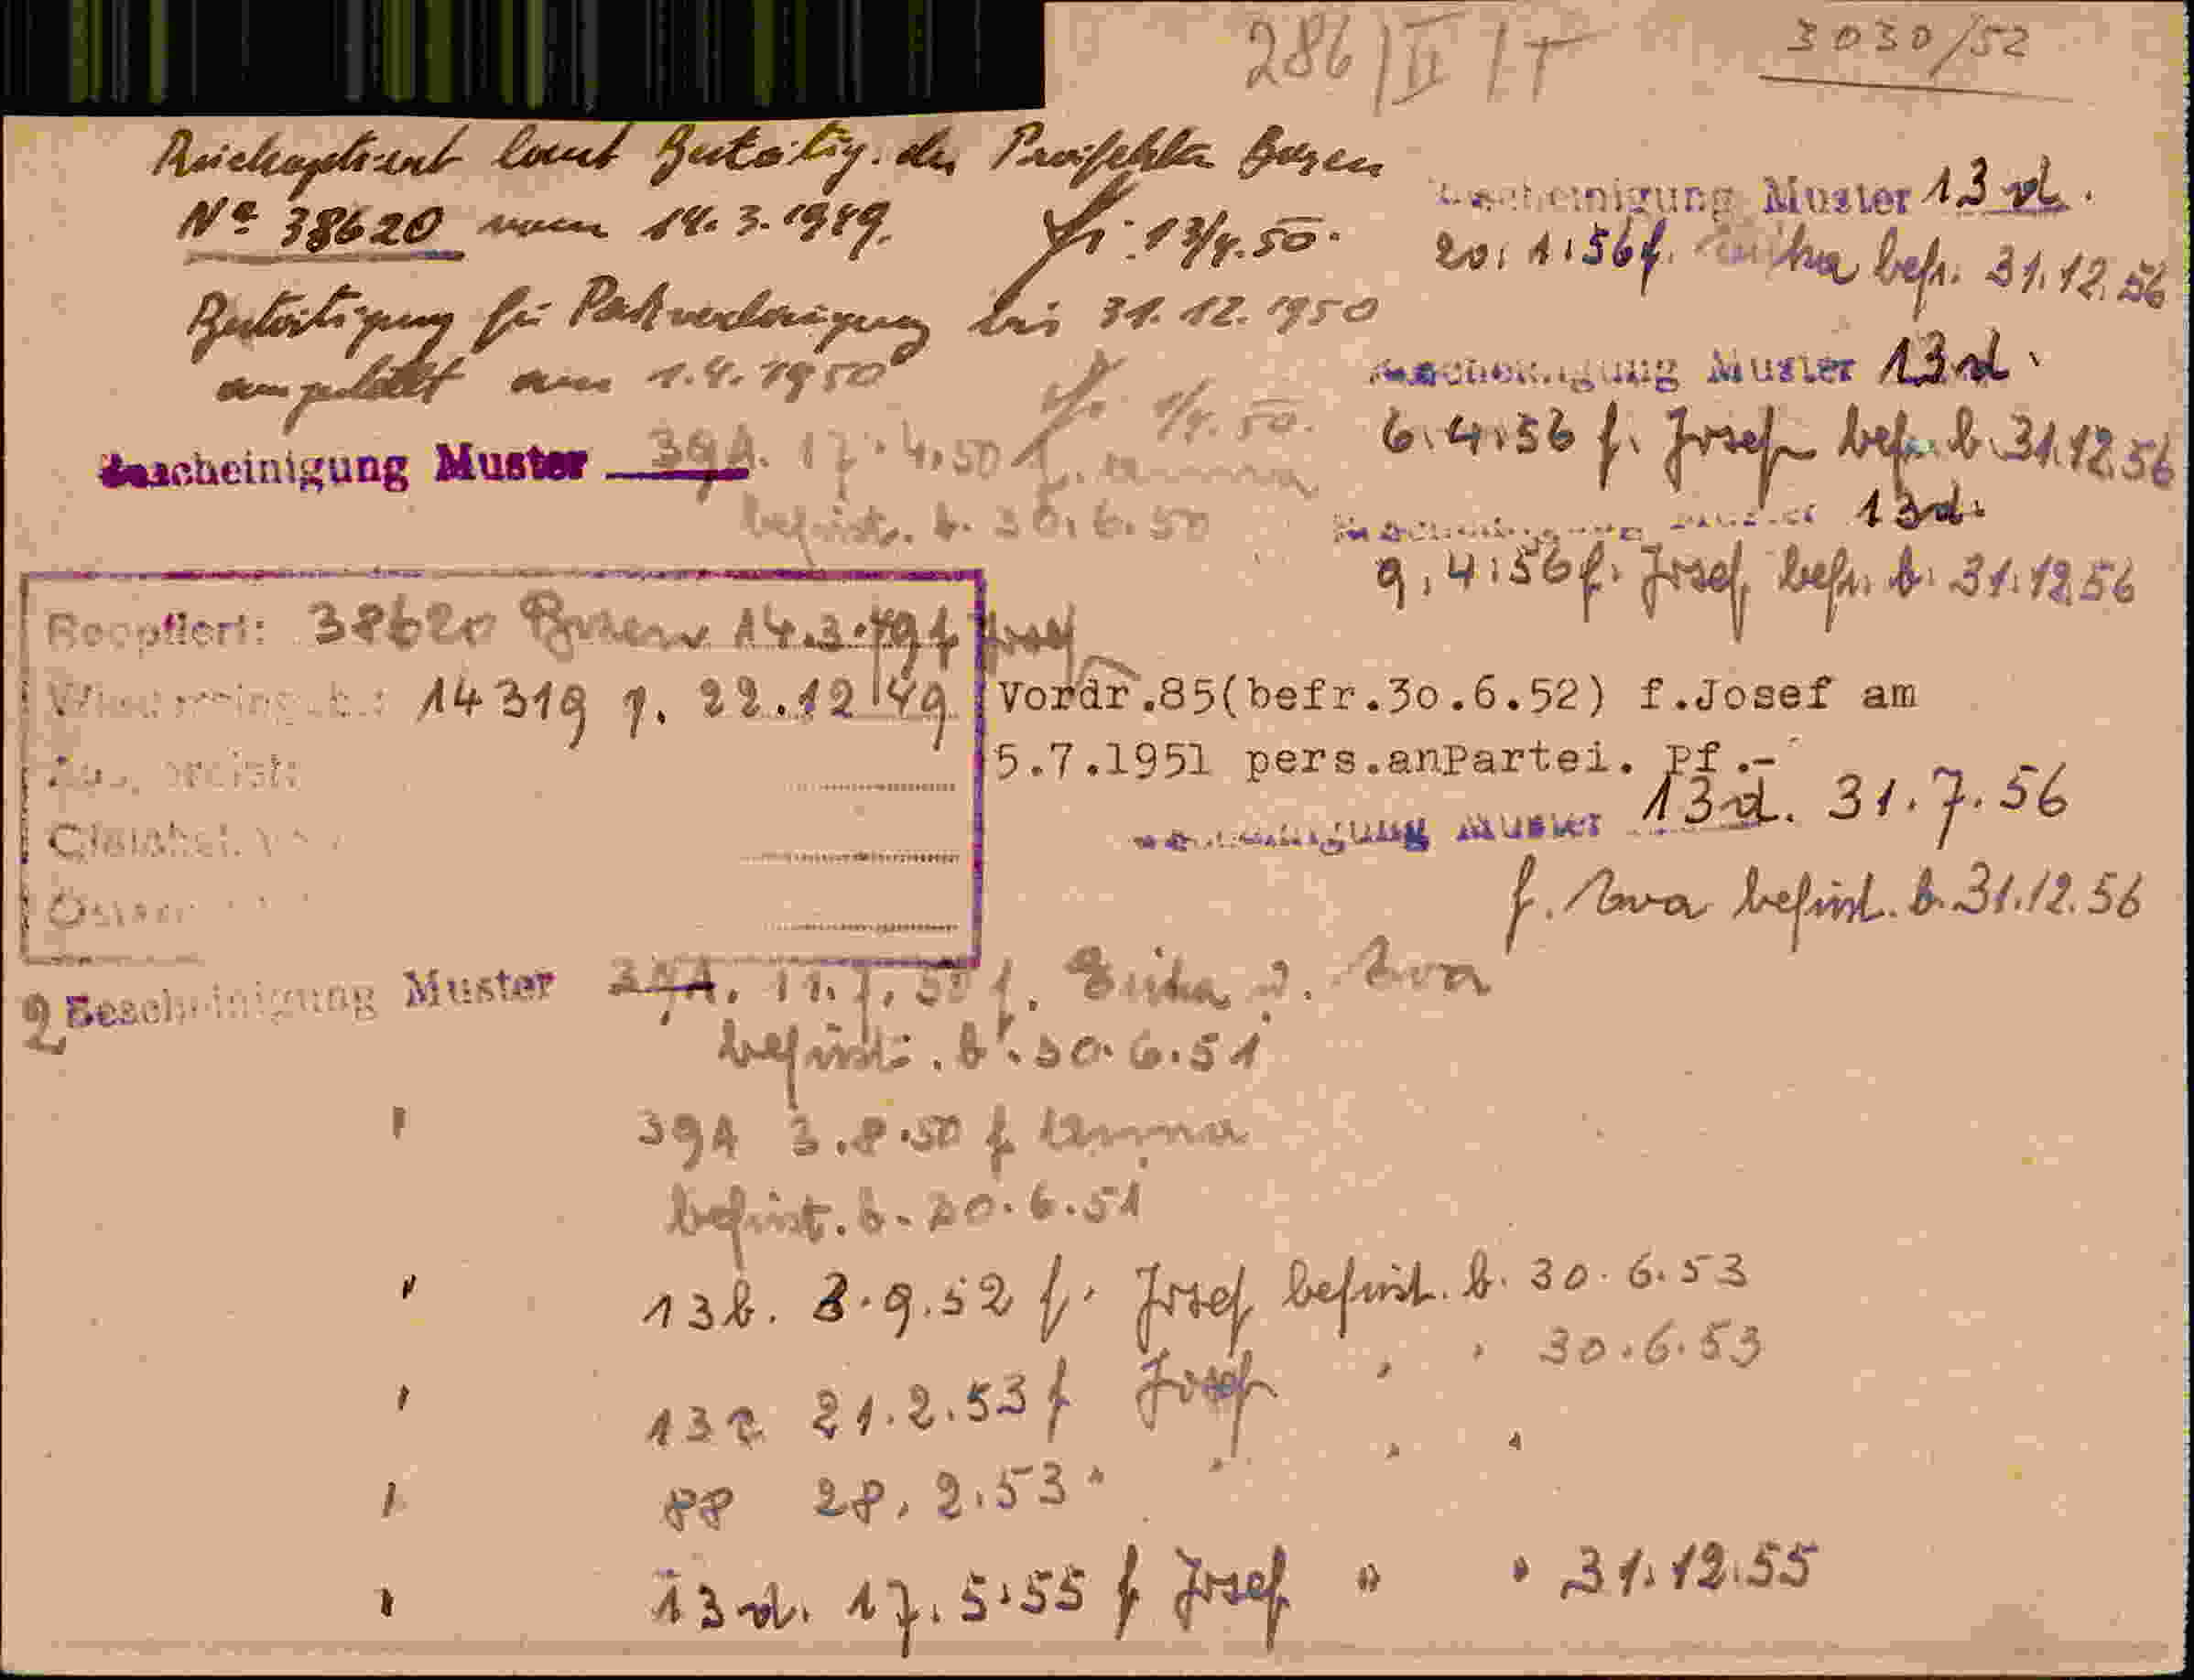 286/II/T
3030/52
Rückoptiert laut Bestätig. der Präfektur Bozen
Nº 38620 vom 14.3.1949. 13/4.50.
Bestätigung für Paßverlängerung bis 31.12.1950
ausgestellt am 1.4.1950 1/4.50.
Bescheinigung Muster 39A. 17.4.50 f. Anna
befrist. b. 30.6.50
Bescheinigung Muster 13d.
20.1.56 f. Erika befr. 31.12.56
Bescheinigung Muster 13d.
6.4.56 f. Josef befr. b. 31.12.56
Bescheinigung Muster 13d.
9.4.56 f. Josef befr. b. 31.12.56
Reoptiert: 38620 Bozen 14.3.49 f Josef
14319 22.12.49
Vordr.85(befr.30.6.52) f.Josef am
5.7.1951 pers.anPartei. Pf.-
Bescheinigung Muster 13d. 31.7.56
f. Eva befrist. b. 31.12.56
2 Bescheinigung Muster 39A. 11.7.50 f. Erika u. Eva
befrist. b. 30.6.51
" 39A 3.8.50 f Anna
befrist. b. 30.6.51
" 13b. 3.9.52 f. Josef befrist. b. 30.6.53
" 13c 21.2.53 f Josef " " 30.6.53
" 88 28.2.53 " " " "
" 13d. 17.5.55 f Josef " " 31.12.55